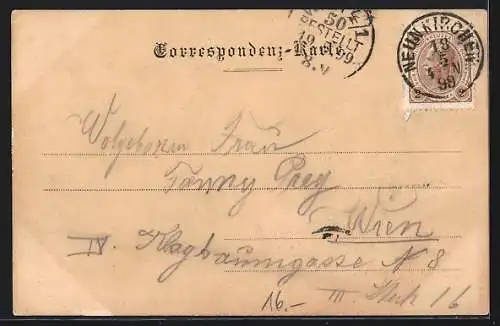 Correspondenz-Karte
50
BESTELLT
19 99
8.V
1
NEUNKIRCHEN
13
5
N
99
Wolgeboren Frau
Fanny
Wien
IV. Klagbaumgasse N 8
III. Stock 16
16.-